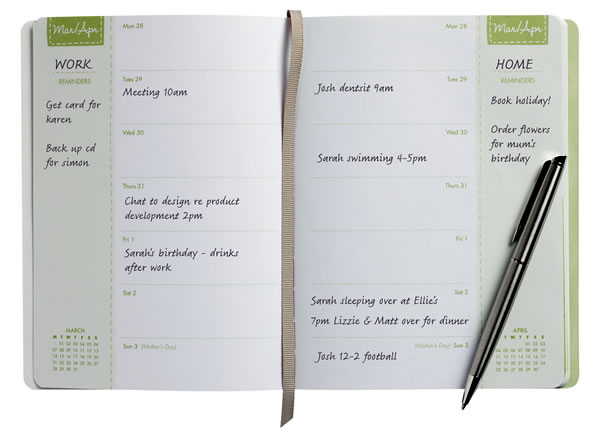 Mar/Apr
WORK
REMINDERS
Get card for
karen
Back up cd
for simon
MARCH
M T W T F S S
Mon 28
Tues 29
Meeting 10am
Wed 30
Thurs 31
Chat to design re product
development 2pm
Fri 1
Sarah's birthday - drinks
after work
Sat 2
Sun 3 (Mother's Day)
Mon 28
Tues 29
Josh dentsit 9am
Wed 30
Sarah swimming 4-5pm
Thurs 31
Fri 1
Sat 2
Sarah sleeping over at Ellie's
7pm Lizzie & Matt over for dinner
(Mother's Day) Sun 3
Josh 12-2 football
Mar/Apr
HOME
REMINDERS
Book holiday!
Order flowers
for mum's
birthday
APRIL